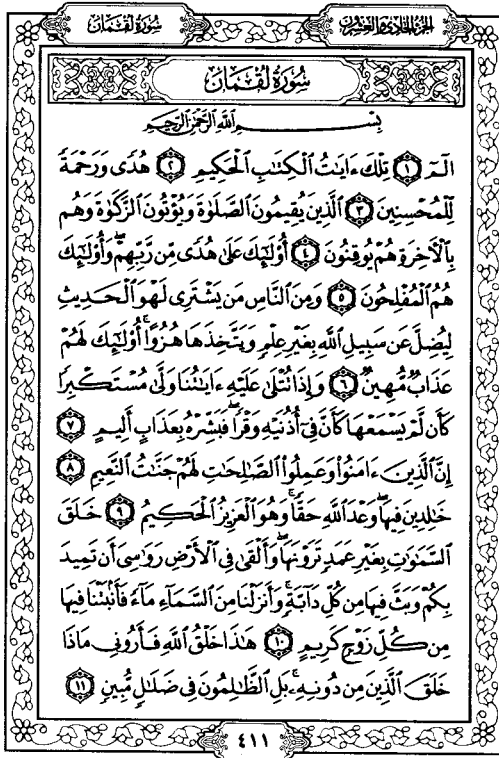 سُورَةُ لُقْمَان الجزء الحادي والعشرون
سُورَةُ لُقْمَان
بِسْمِ اللَّهِ الرَّحْمَٰنِ الرَّحِيمِ
الٓمٓ ١ تِلْكَ ءَايَٰتُ ٱلْكِتَٰبِ ٱلْحَكِيمِ ٢ هُدًى وَرَحْمَةً
لِّلْمُحْسِنِينَ ٣ ٱلَّذِينَ يُقِيمُونَ ٱلصَّلَوٰةَ وَيُؤْتُونَ ٱلزَّكَوٰةَ وَهُم
بِٱلْأَخِرَةِ هُمْ يُوقِنُونَ ٤ أُوْلَٰٓئِكَ عَلَىٰ هُدًى مِّن رَّبِّهِمْۖ وَأُوْلَٰٓئِكَ
هُمُ ٱلْمُفْلِحُونَ ٥ وَمِنَ ٱلنَّاسِ مَن يَشْتَرِى لَهْوَ ٱلْحَدِيثِ
لِيُضِلَّ عَن سَبِيلِ ٱللَّهِ بِغَيْرِ عِلْمٍ وَيَتَّخِذَهَا هُزُوًاۚ أُوْلَٰٓئِكَ لَهُمْ
عَذَابٌ مُّهِينٌ ٦ وَإِذَا تُتْلَىٰ عَلَيْهِ ءَايَٰتُنَا وَلَّىٰ مُسْتَكْبِرًا
كَأَن لَّمْ يَسْمَعْهَا كَأَنَّ فِىٓ أُذُنَيْهِ وَقْرًاۖ فَبَشِّرْهُ بِعَذَابٍ أَلِيمٍ ٧
إِنَّ ٱلَّذِينَ ءَامَنُواْ وَعَمِلُواْ ٱلصَّٰلِحَٰتِ لَهُمْ جَنَّٰتُ ٱلنَّعِيمِ ٨
خَٰلِدِينَ فِيهَاۖ وَعْدَ ٱللَّهِ حَقًّاۚ وَهُوَ ٱلْعَزِيزُ ٱلْحَكِيمُ ٩ خَلَقَ
ٱلسَّمَٰوَٰتِ بِغَيْرِ عَمَدٍ تَرَوْنَهَاۖ وَأَلْقَىٰ فِى ٱلْأَرْضِ رَوَٰسِىَ أَن تَمِيدَ
بِكُمْ وَبَثَّ فِيهَا مِن كُلِّ دَآبَّةٍۚ وَأَنزَلْنَا مِنَ ٱلسَّمَآءِ مَآءً فَأَنۢبَتْنَا فِيهَا
مِن كُلِّ زَوْجٍ كَرِيمٍ ١٠ هَٰذَا خَلْقُ ٱللَّهِ فَأَرُونِى مَاذَا
خَلَقَ ٱلَّذِينَ مِن دُونِهِۦۚ بَلِ ٱلظَّٰلِمُونَ فِى ضَلَٰلٍ مُّبِينٍ ١١
٤١١